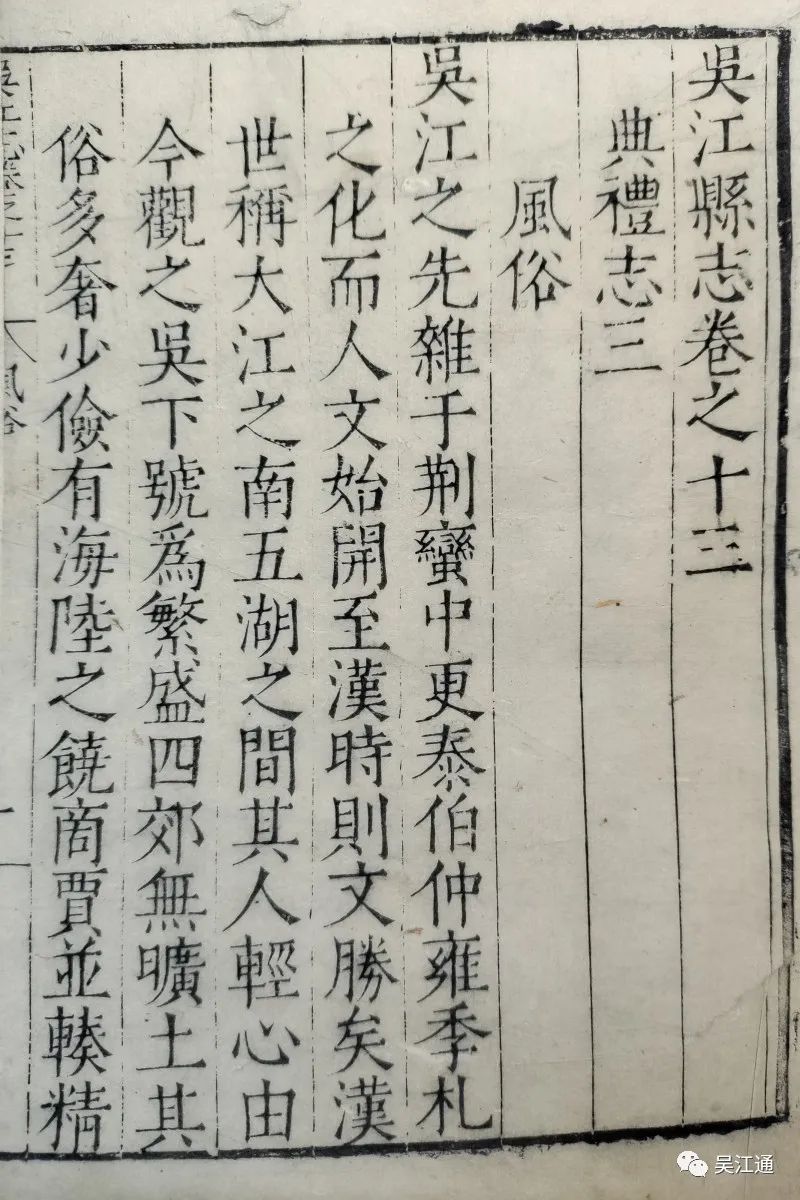 吳江縣志卷之十三
典禮志三
風俗
吳江之先雜于荆蠻中更泰伯仲雍季札
之化而人文始開至漢時則文勝矣漢
世稱大江之南五湖之間其人輕心由
今觀之吳下號爲繁盛四郊無曠土其
俗多奢少儉有海陸之饒商賈並輳精
吳江志卷之十三
風俗
吴江通